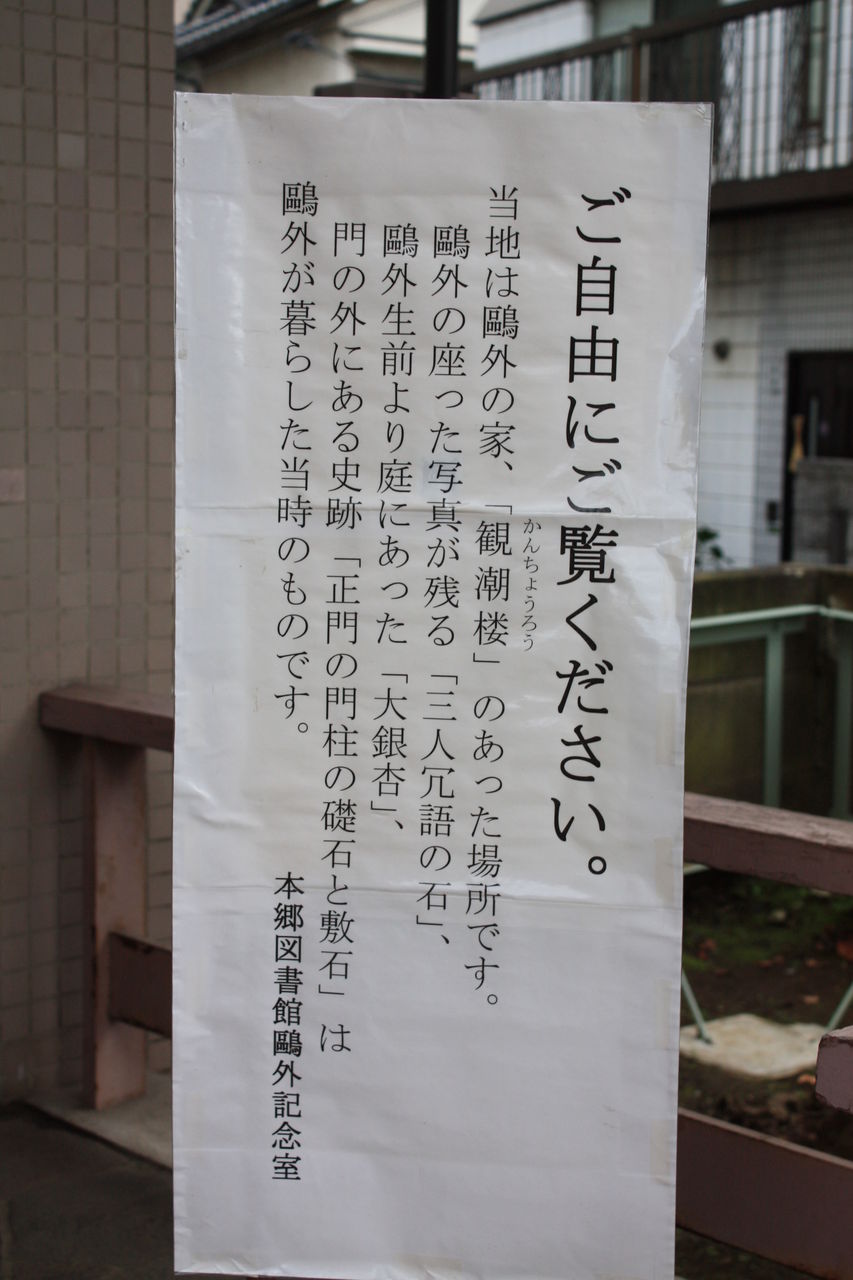 ご自由にご覧ください。
かんちょうろう
当地は鷗外の家、「観潮楼」のあった場所です。
鷗外の座った写真が残る「三人冗語の石」、
鷗外生前より庭にあった「大銀杏」、
門の外にある史跡「正門の門柱の礎石と敷石」は
鷗外が暮らした当時のものです。
本郷図書館鷗外記念室